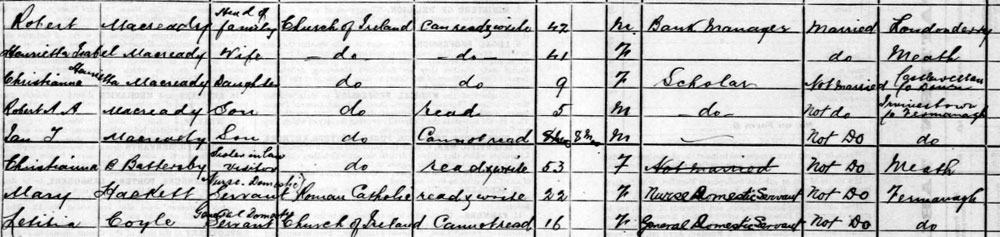 Robert Macready Head of family Church of Ireland Can read & write 42 M Bank Manager Married Londonderry
Henrietta Isabel Macready Wife do do 41 F do Meath
Christianna Henrietta Macready Daughter do do 9 F Scholar Not Married Castlewellan Co Down
Robert A. A. Macready Son do read 5 M do Not do Irvinestown Co Fermanagh
Ian T Macready Son do Cannot read 8 M M Not Do do
Christianna B Battersby Sister in law visitor do read & write 53 F Not Married Not Do Meath
Mary Haskett Nurse Domestic Servant Roman Catholic read & write 22 F Nurse Domestic Servant Not Do Fermanagh
Letitia Coyle General Domestic Servant Church of Ireland Cannot read 16 F General Domestic Servant Not Do do